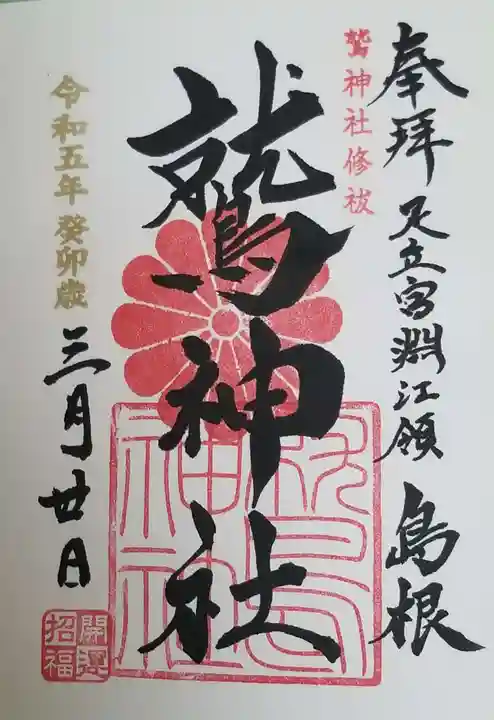 奉拝 足立宮淵江領 島根
鷲神社修祓
鷲神社
鷲神社
令和五年癸卯歳 三月廿日
開運招福